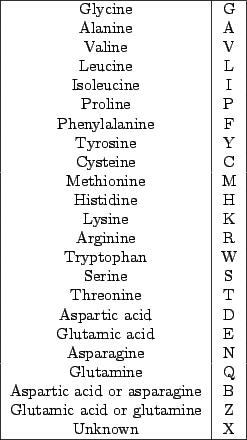 Glycine G
Alanine A
Valine V
Leucine L
Isoleucine I
Proline P
Phenylalanine F
Tyrosine Y
Cysteine C
Methionine M
Histidine H
Lysine K
Arginine R
Tryptophan W
Serine S
Threonine T
Aspartic acid D
Glutamic acid E
Asparagine N
Glutamine Q
Aspartic acid or asparagine B
Glutamic acid or glutamine Z
Unknown X